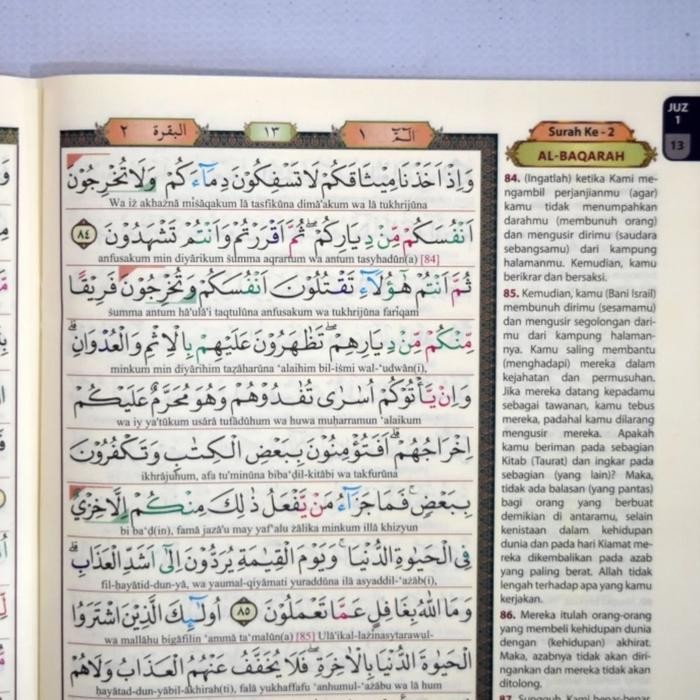 البقرة ٢
١٣
الۤمّۤ ١
وَاِذْ اَخَذْنَا مِيْثَاقَكُمْ لَا تَسْفِكُوْنَ دِمَاۤءَكُمْ وَلَا تُخْرِجُوْنَ
Wa iż akhażnā mīṡāqakum lā tasfikūna dimā'akum wa lā tukhrijūna
اَنْفُسَكُمْ مِّنْ دِيَارِكُمْ ۖ ثُمَّ اَقْرَرْتُمْ وَاَنْتُمْ تَشْهَدُوْنَ ٨٤
anfusakum min diyārikum ṡumma aqrartum wa antum tasyhadūn(a) [84]
ثُمَّ اَنْتُمْ هٰٓؤُلَاۤءِ تَقْتُلُوْنَ اَنْفُسَكُمْ وَتُخْرِجُوْنَ فَرِيْقًا
ṡumma antum hā'ulā'i taqtulūna anfusakum wa tukhrijūna farīqam
مِّنْكُمْ مِّنْ دِيَارِهِمْ ۖ تَظٰهَرُوْنَ عَلَيْهِمْ بِالْاِثْمِ وَالْعُدْوَانِ ۗ
minkum min diyārihim taẓāharūna 'alaihim bil-iṡmi wal-'udwān(i),
وَاِنْ يَّأْتُوْكُمْ اُسٰرٰى تُفٰدُوْهُمْ وَهُوَ مُحَرَّمٌ عَلَيْكُمْ
wa iy ya'tūkum usārā tufādūhum wa huwa muḥarramun 'alaikum
اِخْرَاجُهُمْ ۗ اَفَتُؤْمِنُوْنَ بِبَعْضِ الْكِتٰبِ وَتَكْفُرُوْنَ
ikhrājuhum, afa tu'minūna biba'ḍil-kitābi wa takfurūna
بِبَعْضٍ ۚ فَمَا جَزَاۤءُ مَنْ يَّفْعَلُ ذٰلِكَ مِنْكُمْ اِلَّا خِزْيٌ
bi ba'ḍ(in), famā jazā'u may yaf'alu żālika minkum illā khizyun
فِى الْحَيٰوةِ الدُّنْيَا ۚ وَيَوْمَ الْقِيٰمَةِ يُرَدُّوْنَ اِلٰٓى اَشَدِّ الْعَذَابِ ۗ
fil-ḥayātid-dun-yā, wa yaumal-qiyāmati yuraddūna ilā asyaddil-'ażāb(i),
وَمَا اللّٰهُ بِغَافِلٍ عَمَّا تَعْمَلُوْنَ ٨٥ اُولٰۤىِٕكَ الَّذِيْنَ اشْتَرَوُا
wa mallāhu bigāfilin 'ammā ta'malūn(a) [85] Ulā'ikal-lażīnasytarawul-
الْحَيٰوةَ الدُّنْيَا بِالْاٰخِرَةِ ۖ فَلَا يُخَفَّفُ عَنْهُمُ الْعَذَابُ وَلَا هُمْ
ḥayātad-dun-yābil-ākhirah(ti), falā yukhaffafu 'anhumul-'ażābu wa lā hum
JUZ
1
13
Surah Ke - 2
AL-BAQARAH
84. (Ingatlah) ketika Kami me-
ngambil perjanjianmu (agar)
kamu tidak menumpahkan
darahmu (membunuh orang)
dan mengusir dirimu (saudara
sebangsamu) dari kampung
halamanmu. Kemudian, kamu
berikrar dan bersaksi.
85. Kemudian, kamu (Bani Israil)
membunuh dirimu (sesamamu)
dan mengusir segolongan dari-
mu dari kampung halaman-
nya. Kamu saling membantu
(menghadapi) mereka dalam
kejahatan dan permusuhan.
Jika mereka datang kepadamu
sebagai tawanan, kamu tebus
mereka, padahal kamu dilarang
mengusir mereka. Apakah
kamu beriman pada sebagian
Kitab (Taurat) dan ingkar pada
sebagian (yang lain)? Maka,
tidak ada balasan (yang pantas)
bagi orang yang berbuat
demikian di antaramu, selain
kenistaan dalam kehidupan
dunia dan pada hari Kiamat me-
reka dikembalikan pada azab
yang paling berat. Allah tidak
lengah terhadap apa yang kamu
kerjakan.
86. Mereka itulah orang-orang
yang membeli kehidupan dunia
dengan (kehidupan) akhirat.
Maka, azabnya tidak akan diri-
ngankan dan mereka tidak akan
ditolong.